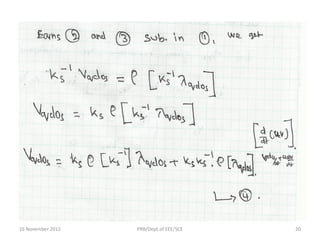 Eqns ② and ③ sub. in ①, we get
Ks⁻¹ Vqdos = ρ [Ks⁻¹ λqdos]
Vqdos = Ks ρ [Ks⁻¹ λqdos]
[d/dt (uv)]
Vqdos = Ks ρ [Ks⁻¹] λqdos + Ks Ks⁻¹ ρ [λqdos].
④.
16 November 2015 PRB/Dept.of EEE/SCE 20